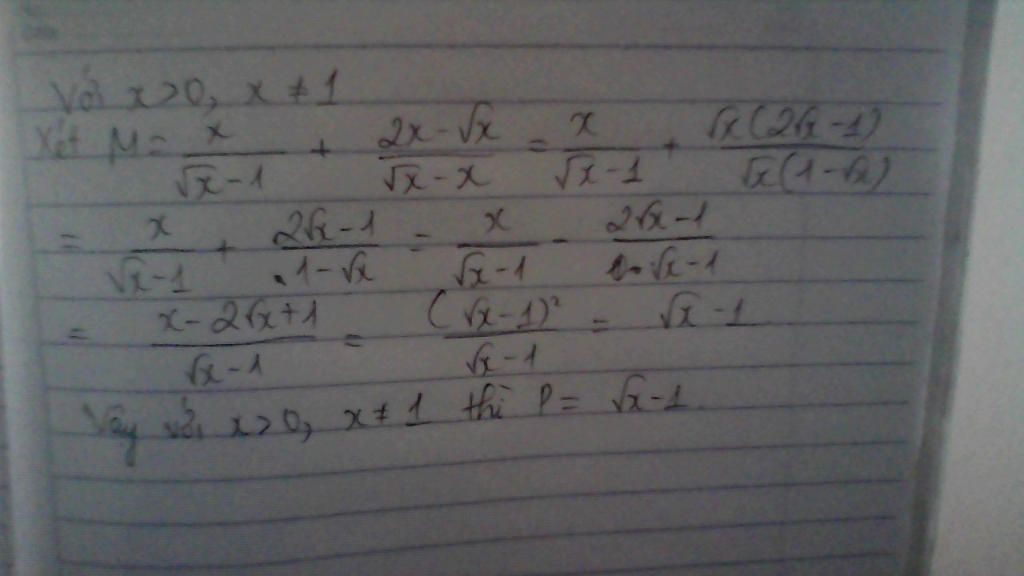 Với x>0, x ≠ 1
Xét M = x/(√x-1) + (2x-√x)/(√x-x) = x/(√x-1) + √x(2√x-1)/(√x(1-√x))
= x/(√x-1) + (2√x-1)/(1-√x) = x/(√x-1) - (2√x-1)/(√x-1)
= (x-2√x+1)/(√x-1) = (√x-1)²/(√x-1) = √x-1
Vậy với x>0, x≠1 thì P = √x-1.